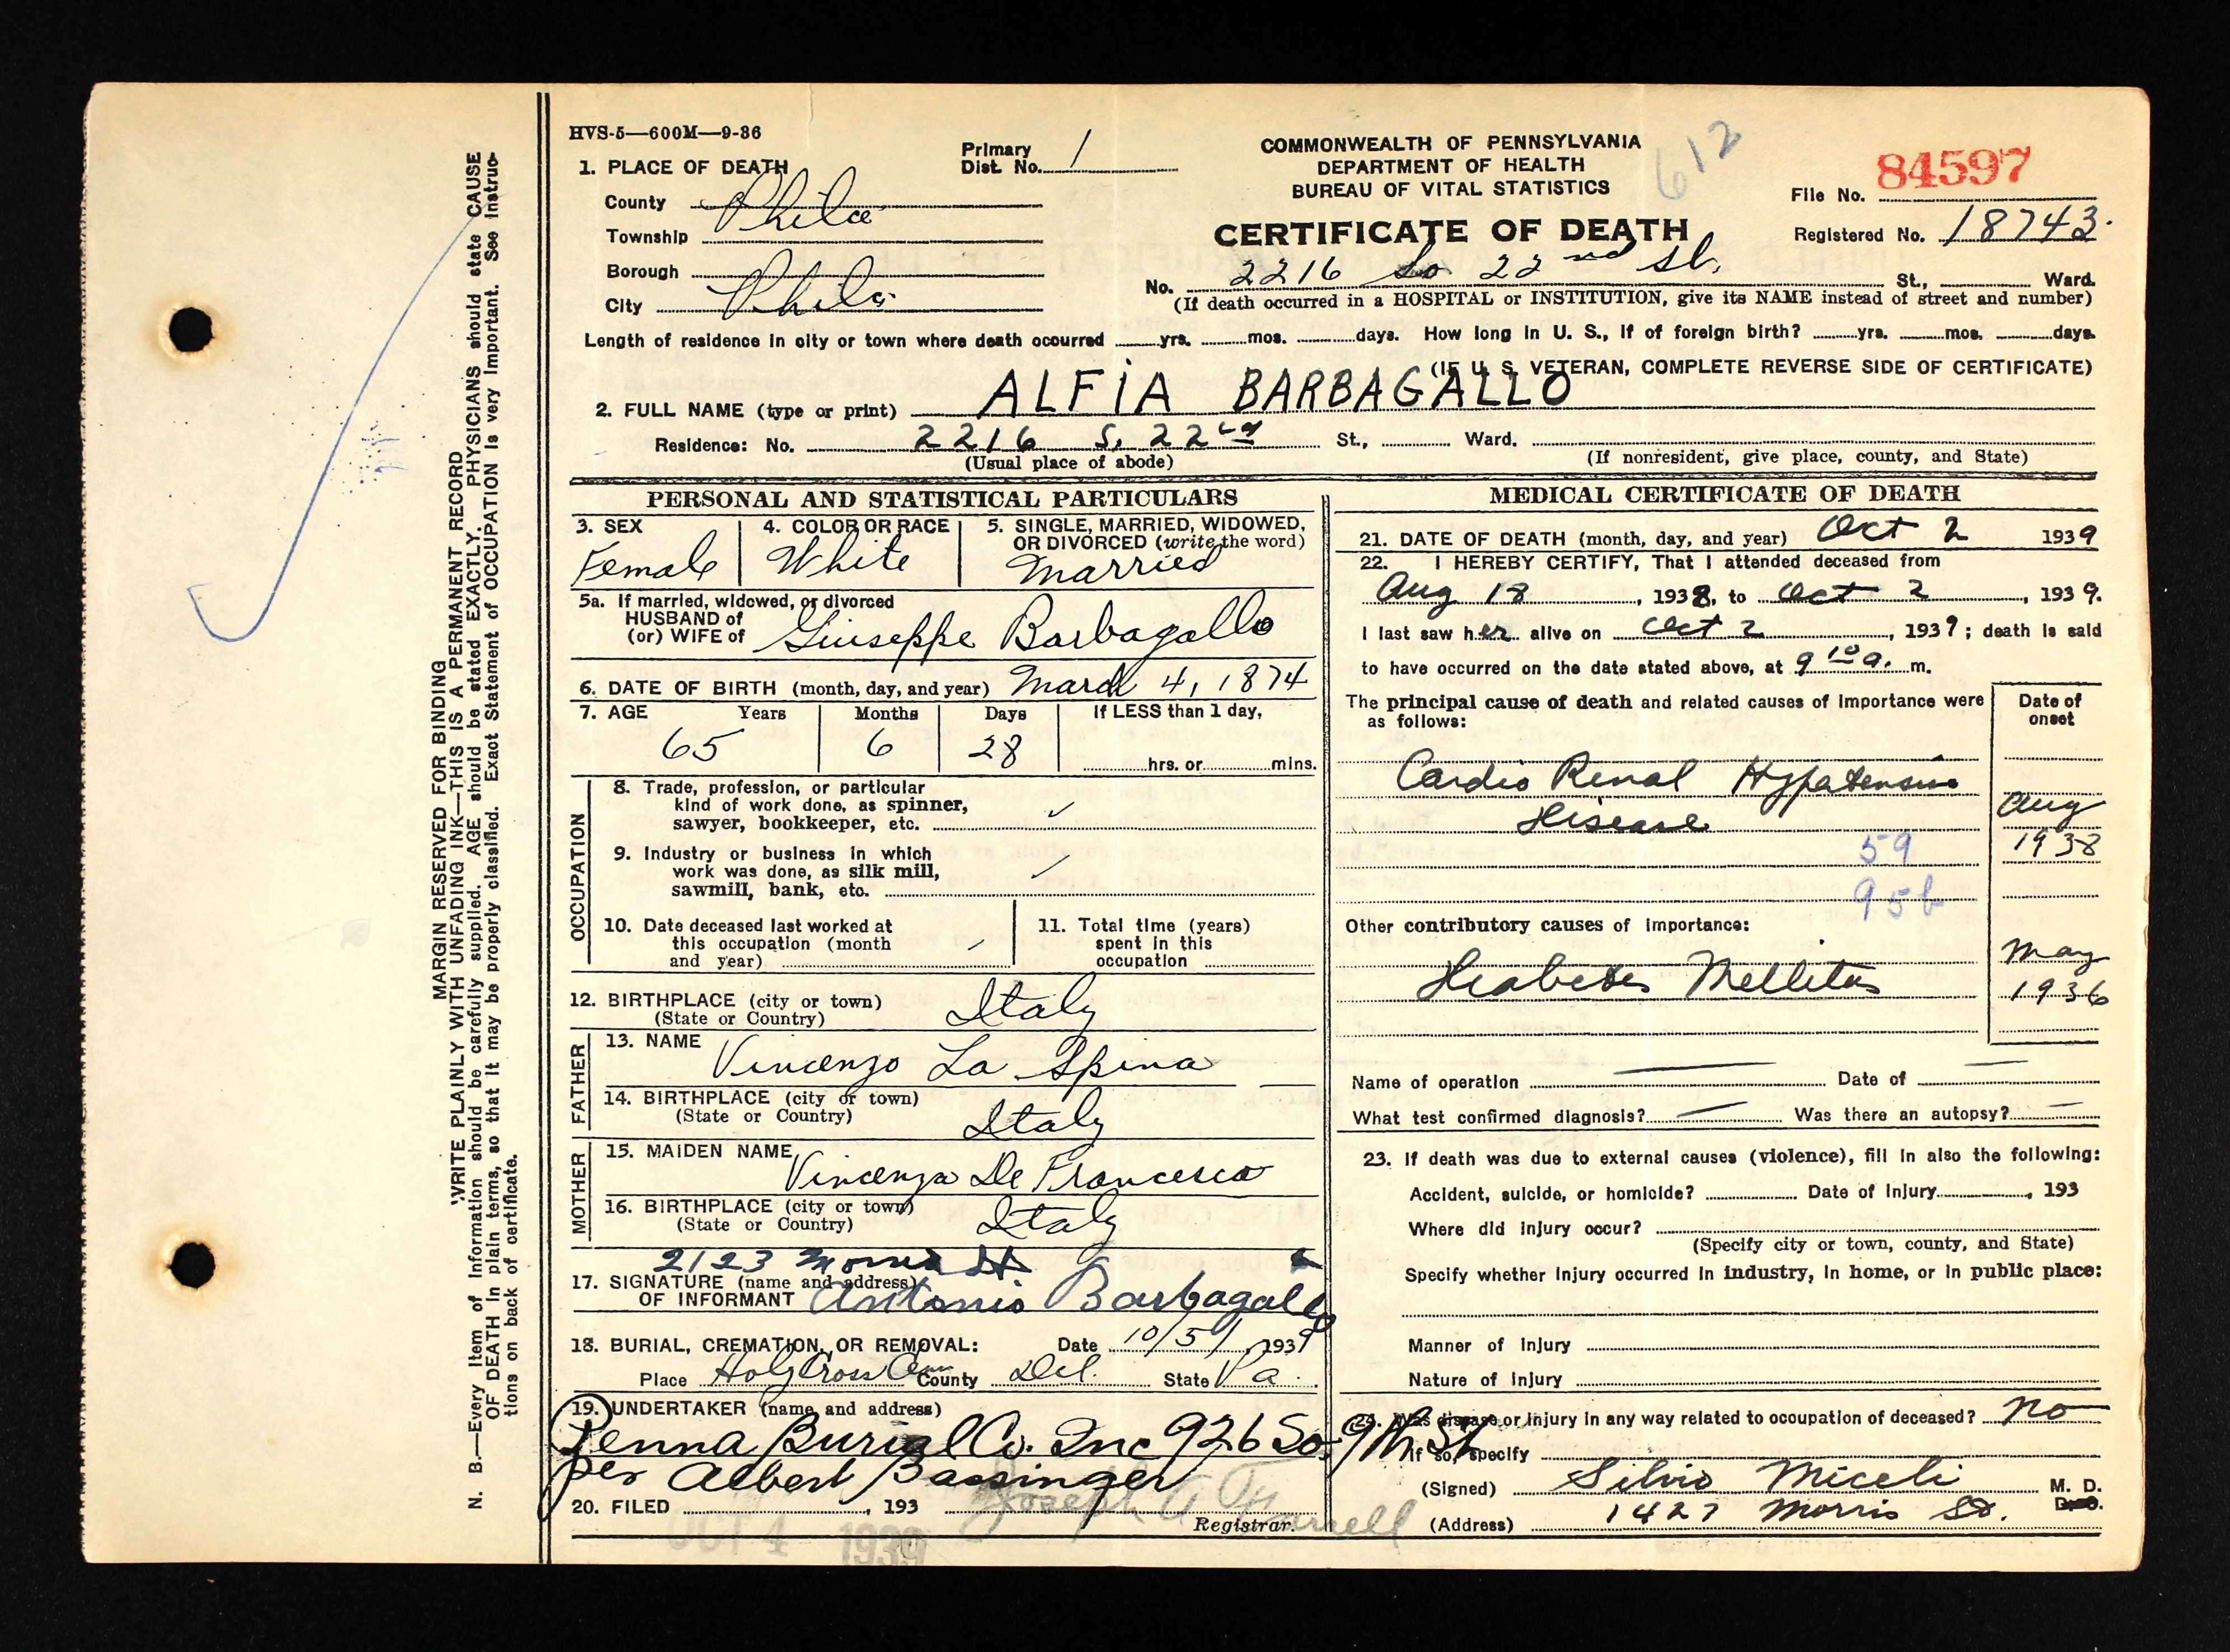 HVS-5—600M—9-36
Primary
Dist. No. 1
COMMONWEALTH OF PENNSYLVANIA
DEPARTMENT OF HEALTH
BUREAU OF VITAL STATISTICS
612
CERTIFICATE OF DEATH
84597
File No.
Registered No. 18743.
1. PLACE OF DEATH
County Phila
Township
Borough
City Phila
No. 2216 So 22nd St. St., Ward.
(If death occurred in a HOSPITAL or INSTITUTION, give its NAME instead of street and number)
Length of residence in city or town where death occurred yrs. mos. days. How long in U. S., if of foreign birth? yrs. mos. days.
(IF U. S. VETERAN, COMPLETE REVERSE SIDE OF CERTIFICATE)
2. FULL NAME (type or print) ALFIA BARBAGALLO
Residence: No. 2216 S. 22nd St., Ward.
(Usual place of abode) (If nonresident, give place, county, and State)
PERSONAL AND STATISTICAL PARTICULARS
3. SEX
Female
4. COLOR OR RACE
White
5. SINGLE, MARRIED, WIDOWED,
OR DIVORCED (write the word)
Married
5a. If married, widowed, or divorced
HUSBAND of
(or) WIFE of Giuseppe Barbagallo
6. DATE OF BIRTH (month, day, and year) March 4, 1874
7. AGE Years Months Days If LESS than 1 day,
65 6 28
hrs. or mins.
OCCUPATION
8. Trade, profession, or particular
kind of work done, as spinner,
sawyer, bookkeeper, etc. ✓
9. Industry or business in which
work was done, as silk mill,
sawmill, bank, etc. ✓
10. Date deceased last worked at
this occupation (month
and year) ✓
11. Total time (years)
spent in this
occupation
12. BIRTHPLACE (city or town)
(State or Country) Italy
FATHER
13. NAME Vincenzo La Spina
14. BIRTHPLACE (city or town)
(State or Country) Italy
MOTHER
15. MAIDEN NAME Vincenza De Francesco
16. BIRTHPLACE (city or town)
(State or Country) Italy
2123 Morris St.
17. SIGNATURE (name and address)
OF INFORMANT Antonio Barbagallo
18. BURIAL, CREMATION, OR REMOVAL: Date 10/5/, 1939
Place Holy Cross Cem County Del. State Pa.
19. UNDERTAKER (name and address)
Penna Burial Co. Inc 926 So. 9th St
per Albert Bassinger
20. FILED , 193
OCT 4 1939
Joseph A Farrell
Registrar.
MEDICAL CERTIFICATE OF DEATH
21. DATE OF DEATH (month, day, and year) Oct 2 1939
22. I HEREBY CERTIFY, That I attended deceased from
Aug 18, 1938, to Oct 2, 1939.
I last saw her alive on Oct 2, 1939; death is said
to have occurred on the date stated above, at 9 10 a. m.
The principal cause of death and related causes of importance were
as follows:
Date of
onset
Cardio Renal Hypatensive
Disease
Aug
1938
59
95b
Other contributory causes of importance:
Diabetes Mellitus
May
1936
Name of operation Date of
What test confirmed diagnosis? Was there an autopsy?
23. If death was due to external causes (violence), fill in also the following:
Accident, suicide, or homicide? Date of injury , 193
Where did injury occur?
(Specify city or town, county, and State)
Specify whether injury occurred in industry, in home, or in public place:
Manner of injury
Nature of injury
24. Was disease or injury in any way related to occupation of deceased? no
If so, specify
(Signed) Silvio Miceli M. D.
D. O.
(Address) 1427 Morris St.
MARGIN RESERVED FOR BINDING
WRITE PLAINLY WITH UNFADING INK—THIS IS A PERMANENT RECORD
N. B.—Every item of information should be carefully supplied. AGE should be stated EXACTLY. PHYSICIANS should state CAUSE
OF DEATH in plain terms, so that it may be properly classified. Exact Statement of OCCUPATION is very important. See instruc-
tions on back of certificate.